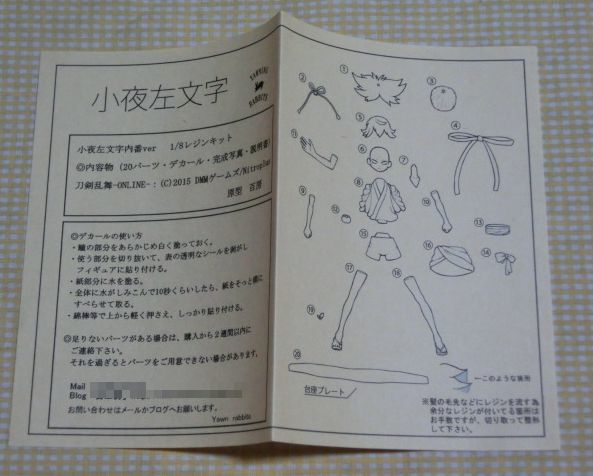 小夜左文字
YAWNING
RABBITS
小夜左文字内番ver　1/8レジンキット
◎内容物（20パーツ・デカール・完成写真・説明書）
刀剣乱舞-ONLINE-：(C)2015 DMMゲームズ/Nitroplus
原型　百房
◎デカールの使い方
・瞳の部分をあらかじめ白く塗っておく。
・使う部分を切り抜いて、表の透明なシールを剥がし
フィギュアに貼り付ける。
・紙部分に水を塗る。
・全体に水がしみこんで10秒くらいしたら、紙をそっと横に
すべらせて取る。
・綿棒等で上から軽く押さえ、しっかり貼り付ける。
◎足りないパーツがある場合は、購入から2週間以内に
ご連絡下さい。
それを過ぎるとパーツをご用意できない場合があります。
Mail
Blog
お問い合わせはメールかブログへお願いします。
Yawn rabbits
①
②
③
④
⑤
⑥
⑦
⑧
⑨
⑩
⑪
⑫
⑬
⑭
⑮
⑯
⑰
⑱
⑲
⑳
台座プレート
←このような箇所
※髪の毛先などにレジンを流す為
余分なレジンが付いてる箇所は
お手数ですが、切り取って整形
して下さい。